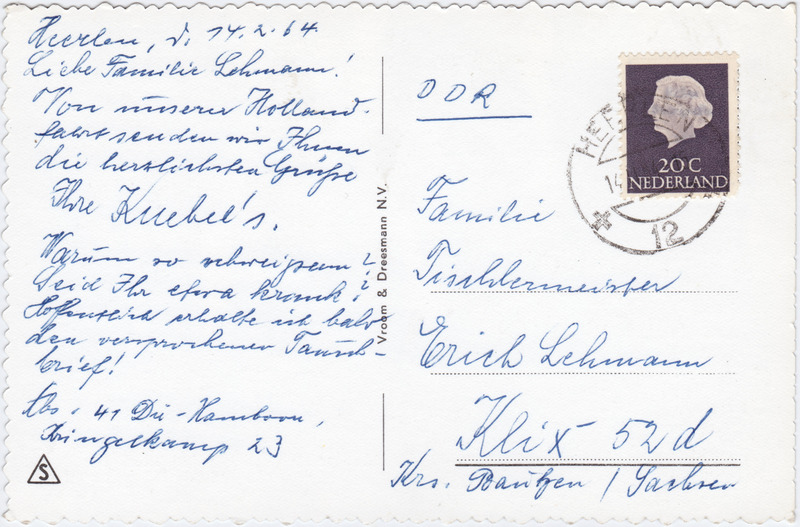 Heerlen, d. 14.2.64
Liebe Familie Lehmann!
Von unserer Holland-
fahrt senden wir Ihnen
die herzlichsten Grüße
Ihre Knebel's.
Warum so schweigsam?
Seid Ihr etwa krank?
Hoffentlich erhalte ich bald
den versprochenen Tausch-
brief!
Abs. 41 Du-Hamborn,
Kringelkamp 23
S
Vroom & Dreesmann N.V.
DDR
20 C
NEDERLAND
HEERLEN
14
12
Familie
Tischlermeister
Erich Lehmann
Klix 52d
Krs. Bautzen / Sachsen